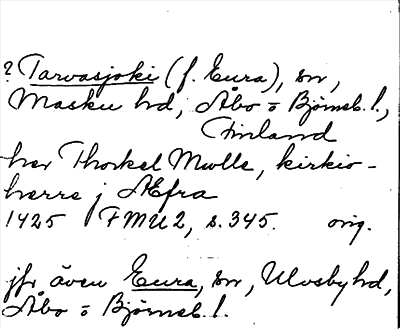 ? Tarvasjoki (f. Eura), sn,
Masku hd, Åbo o Björneb. l.,
Finland
her Thorkel Mulle, kirkio-
herre j Æfra
1425 FMU 2, s. 345. orig.
jfr även Eura, sn, Ulvsby hd,
Åbo o Björneb. l.